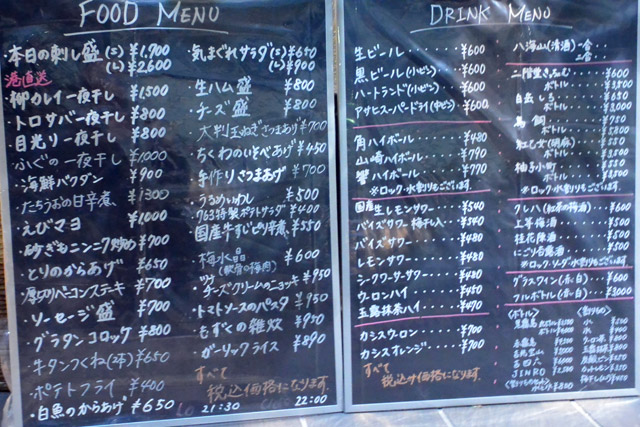 FOOD MENU
本日の刺し盛 (S) ¥1,900
(L) ¥2,600
港直送
柳カレイ一夜干し ¥1500
トロサバ一夜干し ¥800
目光り一夜干し ¥800
ふぐの一夜干し ¥1000
海鮮バクダン ¥900
たちうおの甘辛煮 ¥1300
えびマヨ ¥1000
砂ぎもニンニク炒め ¥700
とりのからあげ ¥650
厚切りベーコンステーキ ¥700
ソーセージ盛 ¥700
グラタンコロッケ ¥800
牛タンつくね(2本) ¥650
ポテトフライ ¥400
白魚のからあげ ¥650
気まぐれサラダ (S) ¥650
(L) ¥900
生ハム盛 ¥800
チーズ盛 ¥800
大判玉ねぎさつまあげ ¥700
ちくわのいそべあげ ¥450
手作りさつまあげ ¥700
うるめいわし ¥500
763特製ポテトサラダ ¥400
国産牛すじピリ辛煮 ¥550
梅水晶 ¥600
(軟骨の梅肉)
チーズクリームのニョッキ ¥950
トマトソースのパスタ ¥950
もずくの雑炊 ¥950
ガーリックライス ¥890
すべて
税込価格になります。
21:30 22:00
DRINK MENU
生ビール ¥600
黒ビール(小ビン) ¥600
ハートランド(小ビン) ¥600
アサヒスーパードライ(中ビン) ¥600
角ハイボール ¥480
山崎ハイボール ¥790
響ハイボール ¥770
※ロック・水割りもございます。
国産生レモンサワー ¥540
バイスサワー 梅干し入 ¥540
バイスサワー ¥480
レモンサワー ¥480
シークワーサーサワー ¥480
ウーロンハイ ¥450
玉露抹茶ハイ ¥470
カシスウーロン ¥700
カシスオレンジ ¥700
すべて
税込み価格になります。
八海山(清酒) 一合
二合
二階堂きみ ¥600
ボトル
ボトル
ボトル ¥3500
柚子小町
※ロック・水割りもございます。
クレハ(紅茶の梅酒) ¥600
上等梅酒 ¥500
桂花陳酒 ¥500
にごり杏露酒 ¥500
※ロック・ソーダ・水割りもございます。
グラスワイン(赤・白) ¥600
フルボトル(赤・白) ¥3000
(ボトル)
黒霧島
JINRO
(割りもの)
小
氷